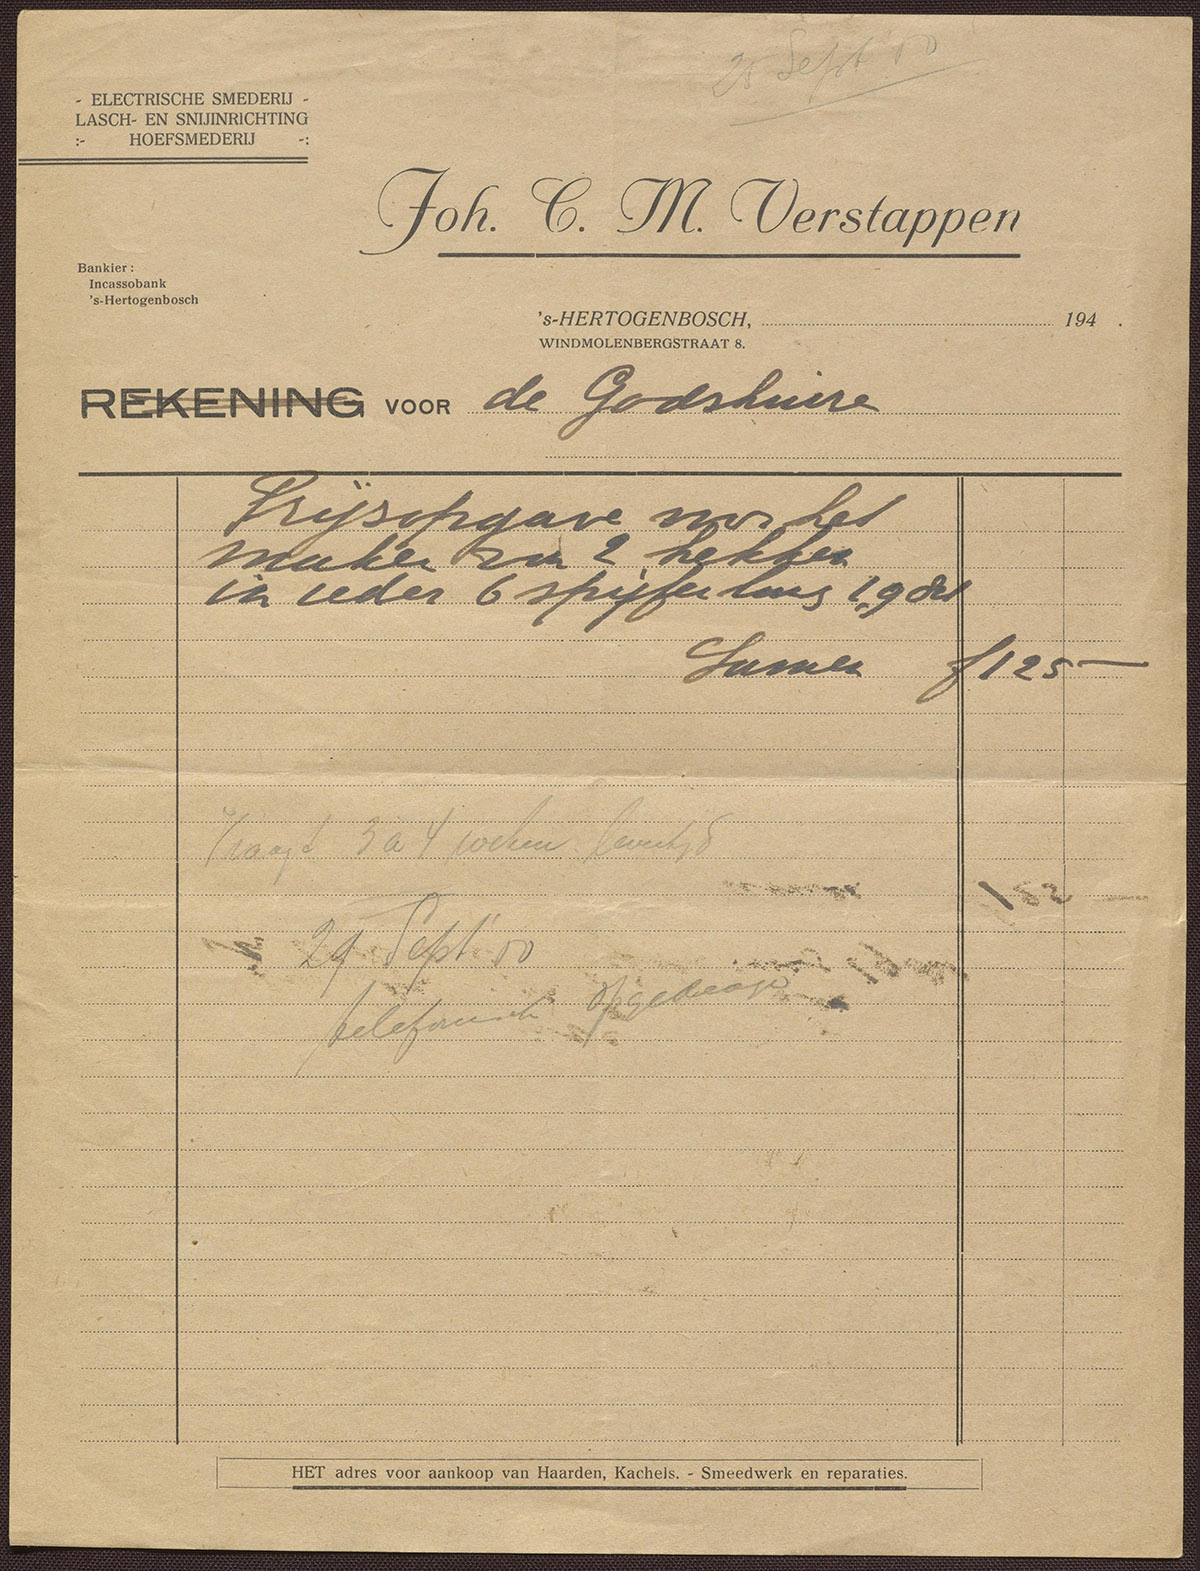 25 Sept 50
- ELECTRISCHE SMEDERIJ -
LASCH- EN SNIJINRICHTING
:- HOEFSMEDERIJ -:
Joh. C. M. Verstappen
Bankier:
Incassobank
's-Hertogenbosch
's-HERTOGENBOSCH, 194 .
WINDMOLENBERGSTRAAT 8.
REKENING VOOR de Godshuise
Prijsopgave voor het
maken van 2 hekken
in ieder 6 spijlen lang 1,90
Samen f 125 —
Vraagt 3 a 4 weken levertijd
29 Sept 50
telefonisch opgedragen
HET adres voor aankoop van Haarden, Kachels. - Smeedwerk en reparaties.